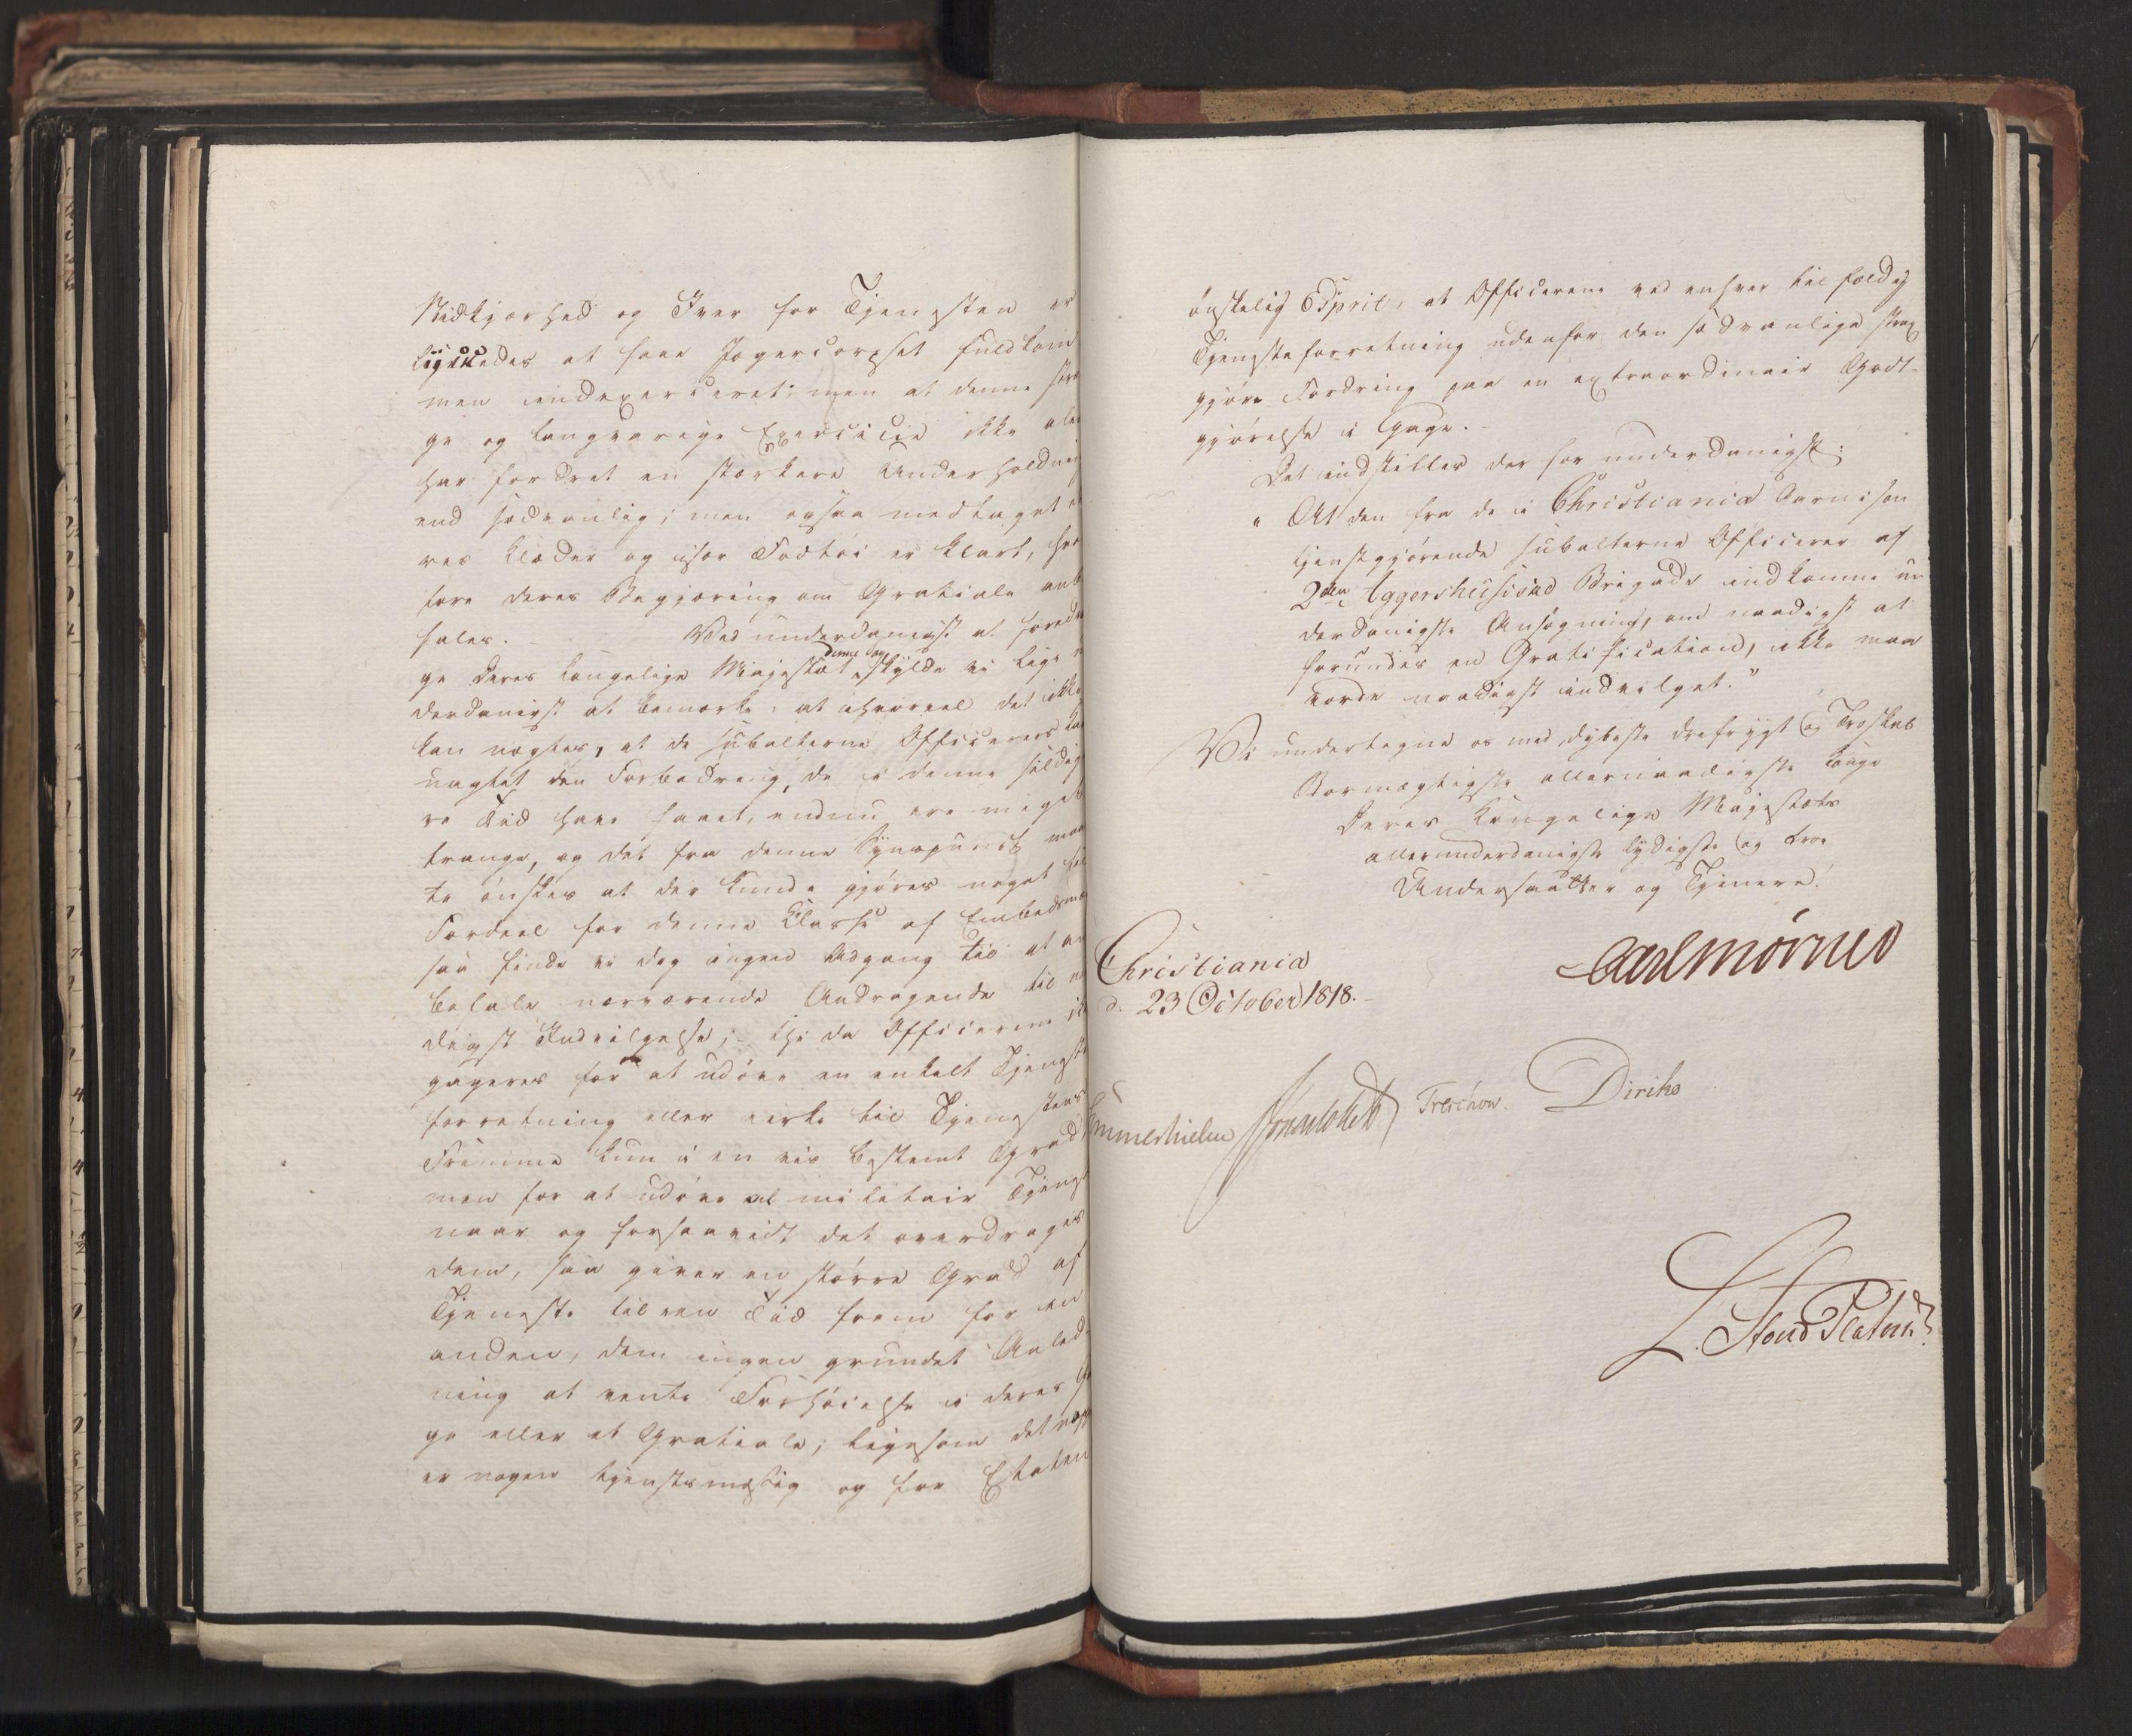 Nidkjærhed og Iver for Tjenesten er
lykkedes at faae Jægercorpset fuldkom
men indexerceret; men at denne stræ
ge og langvarige Exercicie ikke ale
har fordret en stærkere Underholdning
end sædvanlig; men ogsaa medtaget
res Klæder og især Fodtøi er klart, hvo
fore deres Begjæring om Gratiale anb
fales. Ved underdanigst at foredra
ge Deres Kongelige Majestæt denne Sag skylde vi lige
derdanigst at bemærke: at ihvorvel det ikke
kan nægtes, at de subalterne Officerers
uagtet den Forbedring, de i denne sildig
re Tid have faaet, endnu ere meget
trange, og det fra denne Synspunct maa
te ønskes at der kunde gjøres noget til
Fordeel for denne Classe af Embedsmæ
saa finde vi dog ingen Adgang til at an
befale nærværende Andragende til na
digst Indvilgelse; thi da Officererne ik
gageres for at udøve en enkelt Tjeneste
forretning eller virke til Tjenestens
Fremme kun i en vis bestemt Grad
men for at udøve al militair Tjenest
naar og forsaavidt det overdrages
dem, saa giver en større Grad af
Tjeneste til een Tid frem for en
anden, dem ingen grundet Anled
ning at vente Forhøielse i deres Ga
ge eller et Gratiale; ligesom det
er nogen tjenstmæssig og for Etaten
ønskelig Esprit, at Officererne ved enhver tilfældig
Tjenesteforretning udenfor den sædvanlige strax
gjøre Fordring paa en extraordinair Godt-
gjørelse i Gage.
Det indstilles derfor underdanigst:
"At den fra de i Christiania Garnison
tjenstgjørende subalterne Officerer af
2den Aggershusiske Brigade indkomne un
derdanigste Ansøgning, om naadigst at
forundes en Gratification, ikke maa
vorde naadigst indvilget."
Vi undertegne os med dybeste Ærefrygt og Troskab
Stormægtigste allernaadigste Konge
Deres Kongelige Majestæts
allerunderdanigste lydigste og troe
Undersaatter og Tjenere.
Carl Mörner
Christiania
d. 23 October 1818.
Sommerhielm Treschow. Diriks
L. Stoud Platou